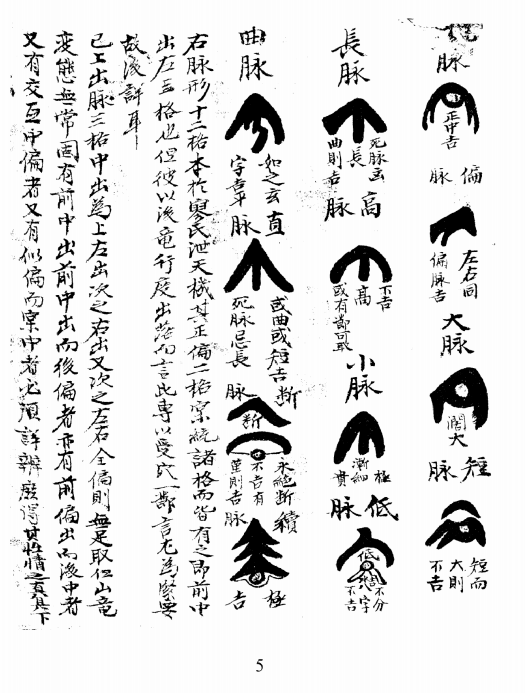 脈
正中吉
偏脈
左右同
偏脈吉
大脈
闊大
短脈
短而
大則
不吉
長脈
死脈畏
長
曲則吉
高脈
不吉
高
小脈
極
漸細
貴
低脈
低
不分
八字
不吉
曲脈
如之玄
字吉
直脈
或曲或短吉
死脈忌長
斷脈
斷
永絕斷
不吉有
則吉
續脈
極
吉
右脈形十二格本於廖氏泄天機其正偏二格寔統諸格而皆有之即前中
出左右格也但彼以後竜行度出落而言此專以受穴一節言尤為緊要
故復詳耳
已上出脈三格中出為上左出次之右出又次之左右全偏則無足取但山竜
變態無常固有前中出前中出而後偏者亦有前偏出而後中者
又有交互中偏者又有似偏而寔中者尤須詳辨庶得其性情之真具下
5